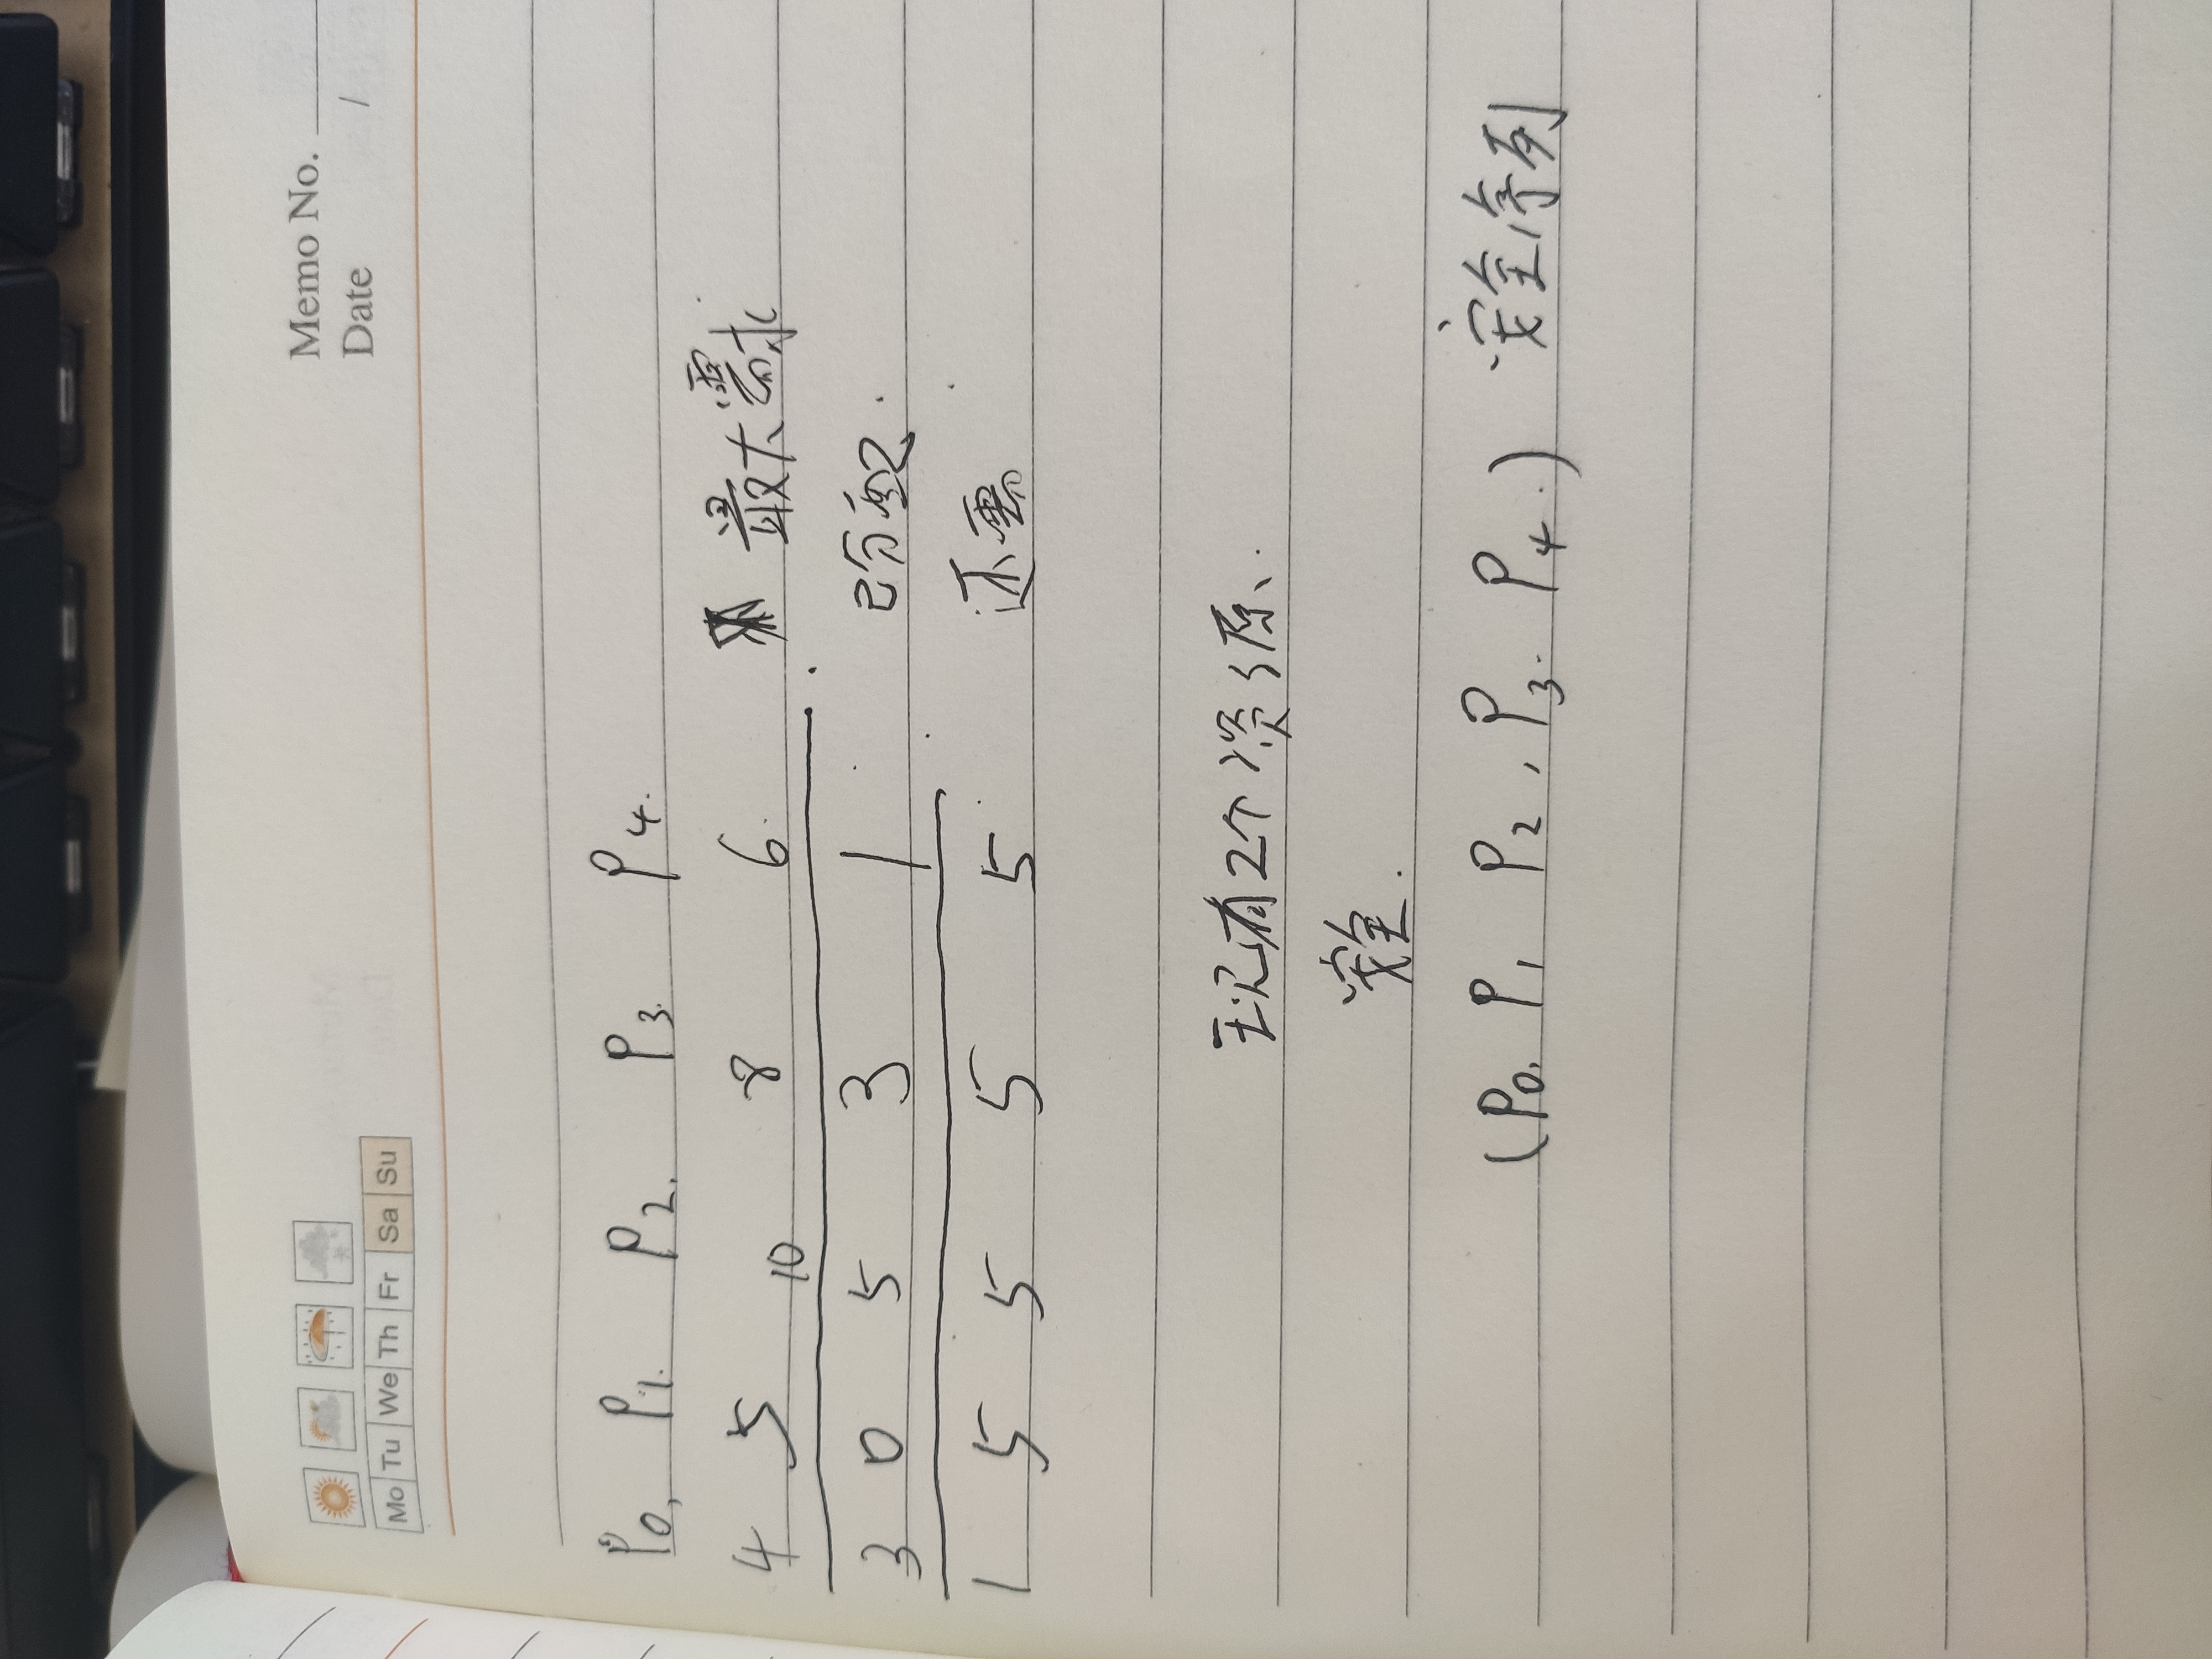 Memo No.
Date /
Mo Tu We Th Fr Sa Su
P0, P1. P2. P3. P4.
4 5 10 8 6. 最大需求
3 0 5 3 1 已分配.
1 5 5 5 5 还需
现有2个资源.
安全.
(P0. P1 P2, P3. P4.) 安全序列